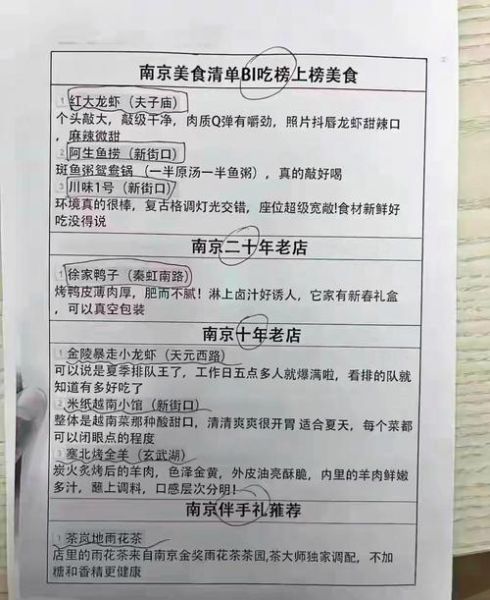 南京美食清单BI吃榜上榜美食
1 红大龙虾（夫子庙）
个头敲大，敲级干净，肉质Q弹有嚼劲，照片抖唇龙虾甜辣口
，麻辣微甜
2 阿生鱼捞（新街口）
斑鱼粥鸳鸯锅（一半原汤一半鱼粥），真的敲好喝
3 川味1号（新街口）
环境真的很棒，复古格调灯光交错，座位超级宽敞!食材新鲜好
吃没得说
南京二十年老店
1 徐家鸭子（秦虹南路）
烤鸭皮薄肉厚，肥而不腻！淋上卤汁好诱人，它家有新春礼盒
，可以真空包装
南京十年老店
1 金陵暴走小龙虾（天元西路）
可以说是夏季排队王了，工作日五点多人就爆满啦，看排的队就
知道有多好吃了
2 米纸越南小馆（新街口）
整体是越南菜那种酸甜口，清清爽爽很开胃 适合夏天，每个菜都
可以闭眼点的程度
3 塞北烤全羊（玄武湖）
炭火炙烤后的羊肉，色泽金黄，外皮油亮酥脆，内里的羊肉鲜嫩
多汁，蘸上调料，口感层次分明！
南京伴手礼推荐
1 茶岚地雨花茶
店里的雨花茶来自南京金奖雨花茶茶园,茶大师独家调配，不加
糖和香精更健康